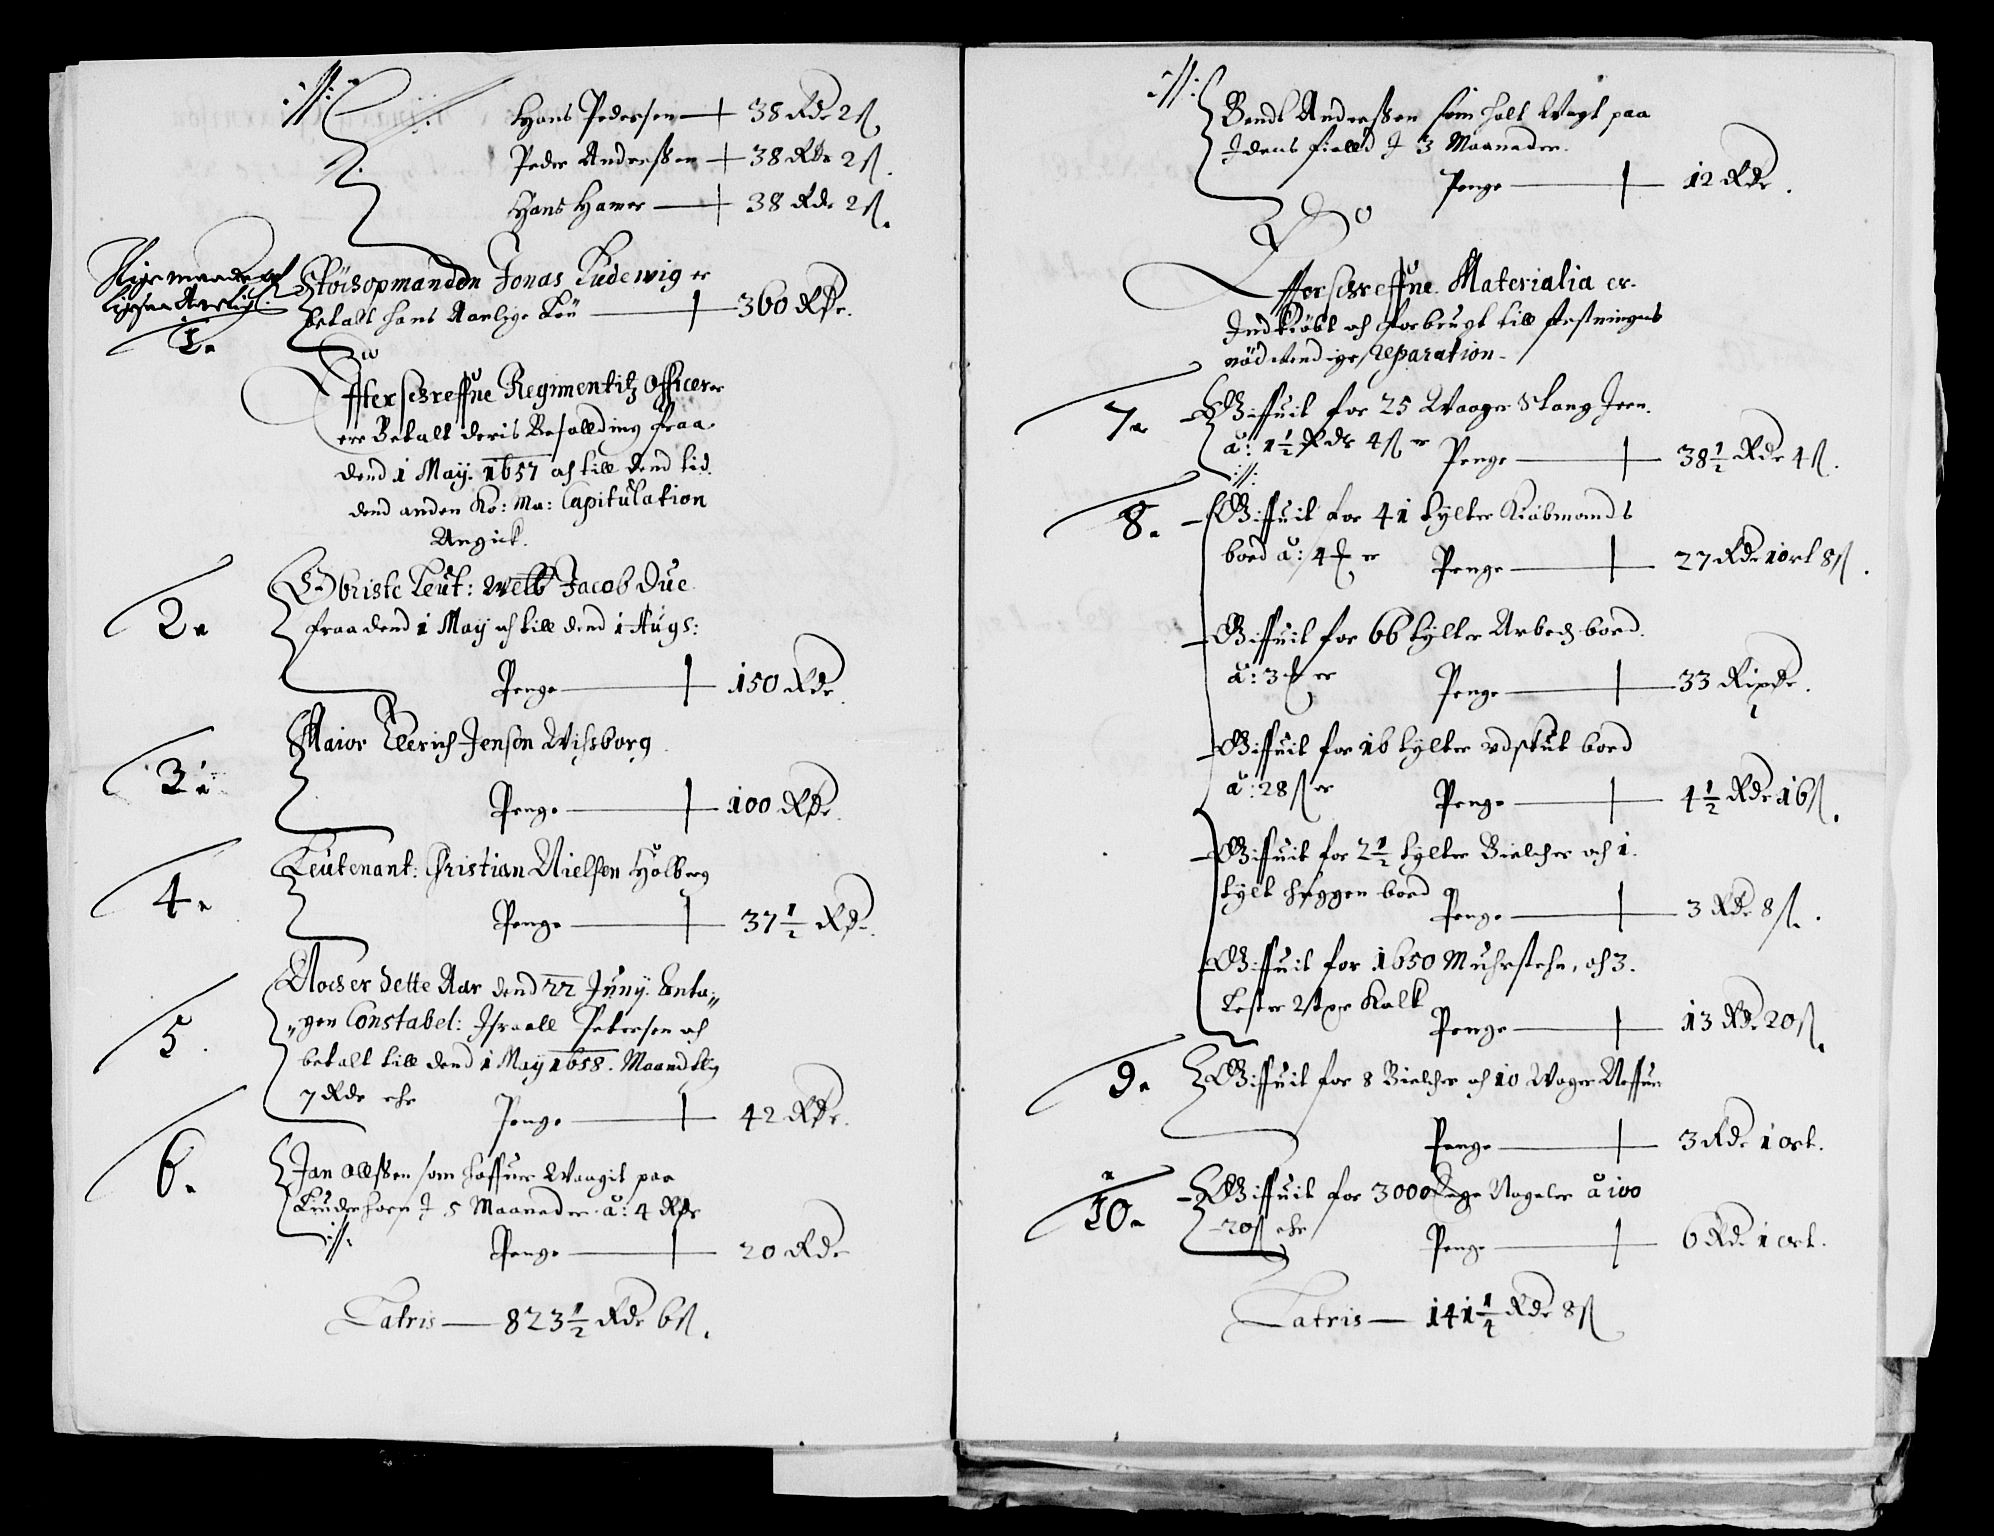 Hans Pedersen — 38 Rdr 2 ß.
Peder Anderssen — 38 Rdr 2 ß.
Hans Hamer — 38 Rdr 2 ß.
1.
Töisopmanden Jonas Ludewig er
betalt hans Aarlige Lön — 360 Rdr.
Effterschreffne Regimentitz Officerer
ere Betalt deris Besolding fraa
dend 1 Maij. 1657 och till dend tid.
dend anden Ko: Ma: Capitulation
Angick.
2.
Obriste Leut: Welb Jacob Due
fraa dend 1 Maij och till dend 1 Augs:
Penge — 150 Rdr.
3.
Maior Ellerich Jensen Wissborg
Penge — 100 Rdr.
4.
Leutenant: Christian Nielsen Holberg
Penge — 37 1/2 Rdr.
5.
Noch er dette Aar dend 22 Junij. Anta-
gen Constabel: Israell Petersen och
betalt till dend 1 Maij 1658. Maanedtlig
7 Rdr ehr
Penge — 42 Rdr.
6.
Jan Ollssen som haffuer Waagit paa
5 Maaneder a: 4 Rdr
Penge — 20 Rdr
Latris — 823 1/2 Rdr 6 ß.
Bendt Anderssen som holt Wagt paa
Idens fielld I 3 Maaneder.
Penge — 12 Rdr.
Effterschreffne Materialia er
Indkiöbt och forbrugt till festningens
nödvendige reparation.
7.
Giffuit for 25 Waager Stang Jern
a: 1 1/2 Rdr 4 ß er Penge — 38 1/2 Rdr 4 ß.
8.
Giffuit for 41 tylter Kiöbmands
bord a: 4 er Penge — 27 Rdr 1 ort 8 ß.
Giffuit for 66 tylter Arbeds bord
a: 3 er Penge — 33 Rixdr.
Giffuit for 16 tylter vdskut bord
a: 28 ß er Penge — 4 1/2 Rdr 16 ß.
Giffuit for 2 1/2 tylter Bielcher och 1
tylt huggen bord Penge — 3 Rdr 8 ß.
Giffuit for 1650 Muhrstehn, och 3.
Lester 2 Kalk
Penge — 13 Rdr 20 ß.
9.
Giffuit for 8 Bielcher och 10 Woger Neffuer
Penge — 3 Rdr 1 ort.
10.
Giffuit for 3000 Nageler a 100
20 ß ehr Penge — 6 Rdr 1 ort.
Latris — 141 1/4 Rdr 8 ß